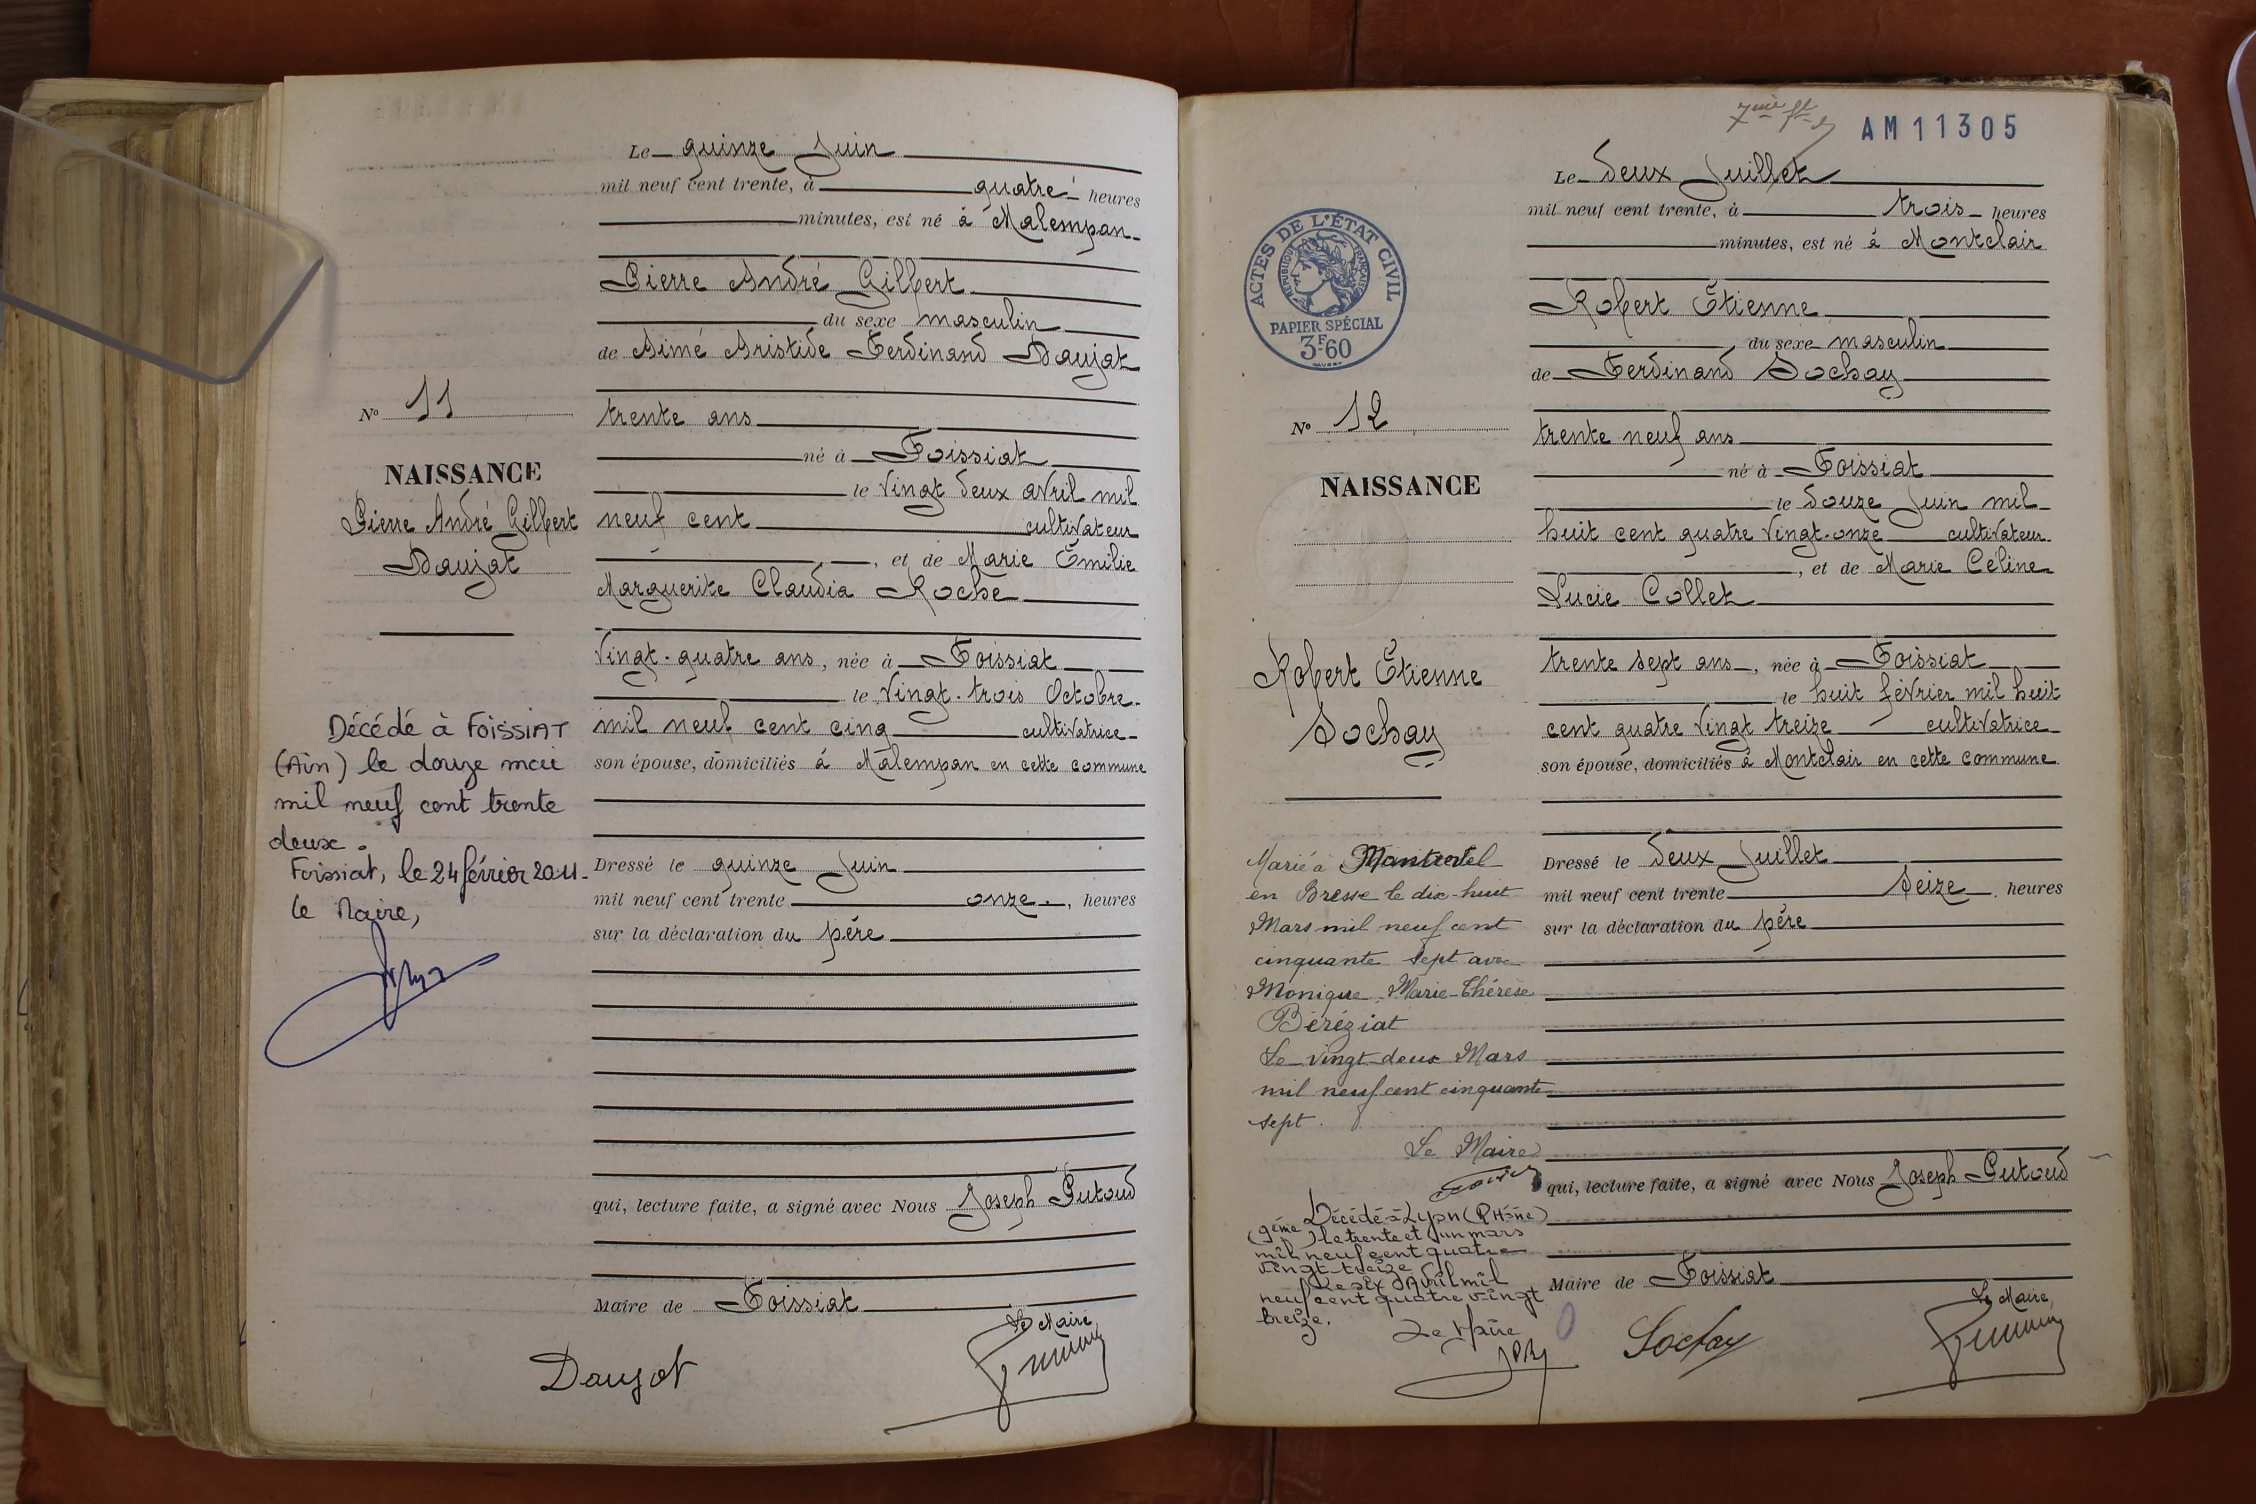 Le quinze Juin
mil neuf cent trente, à quatre heures
minutes, est né à Malempan
Pierre André Gilbert
du sexe masculin
de Aimé Aristide Ferdinand Daujat
trente ans
né à Foissiat
le vingt deux avril mil
neuf cent cultivateur
, et de Marie Émilie
Marguerite Claudia Roche
vingt-quatre ans, née à Foissiat
le vingt-trois Octobre
mil neuf cent cinq cultivatrice
son épouse, domiciliés à Malempan en cette commune
Dressé le quinze Juin
mil neuf cent trente onze, heures
sur la déclaration du père
qui, lecture faite, a signé avec Nous Joseph Putoud
Maire de Foissiat
Le Maire
Daujat
No 11
NAISSANCE
Pierre André Gilbert
Daujat
Décédé à FOISSIAT
(Ain) le douze mai
mil neuf cent trente
deux.
Foissiat, le 24 février 2011.
le Maire,
AM11305
Le deux Juillet
mil neuf cent trente, à trois heures
minutes, est né à Montclair
Robert Étienne
du sexe masculin
de Ferdinand Sochay
trente neuf ans
né à Foissiat
le douze Juin mil
huit cent quatre vingt-onze cultivateur
, et de Marie Céline
Lucie Collet
trente sept ans, née à Foissiat
le huit février mil huit
cent quatre vingt treize cultivatrice
son épouse, domiciliés à Montclair en cette commune
Dressé le deux Juillet
mil neuf cent trente seize, heures
sur la déclaration du père
qui, lecture faite, a signé avec Nous Joseph Putoud
Maire de Foissiat
Le Maire,
Sochay
ACTES DE L'ÉTAT CIVIL
RÉPUBLIQUE FRANÇAISE
PAPIER SPÉCIAL
3F60
No 12
NAISSANCE
Robert Étienne
Sochay
Marié à Montrevel
en Bresse le dix-huit
Mars mil neuf cent
cinquante sept avec
Monique, Marie-Thérèse
Béréziat
Le vingt-deux Mars
mil neuf cent cinquante
sept.
Le Maire
Décédé à Lyon (Rhône)
(9ème) le trente et un mars
mil neuf cent quatre
vingt treize
Le six Avril mil
neuf cent quatre vingt
treize.
Le Maire